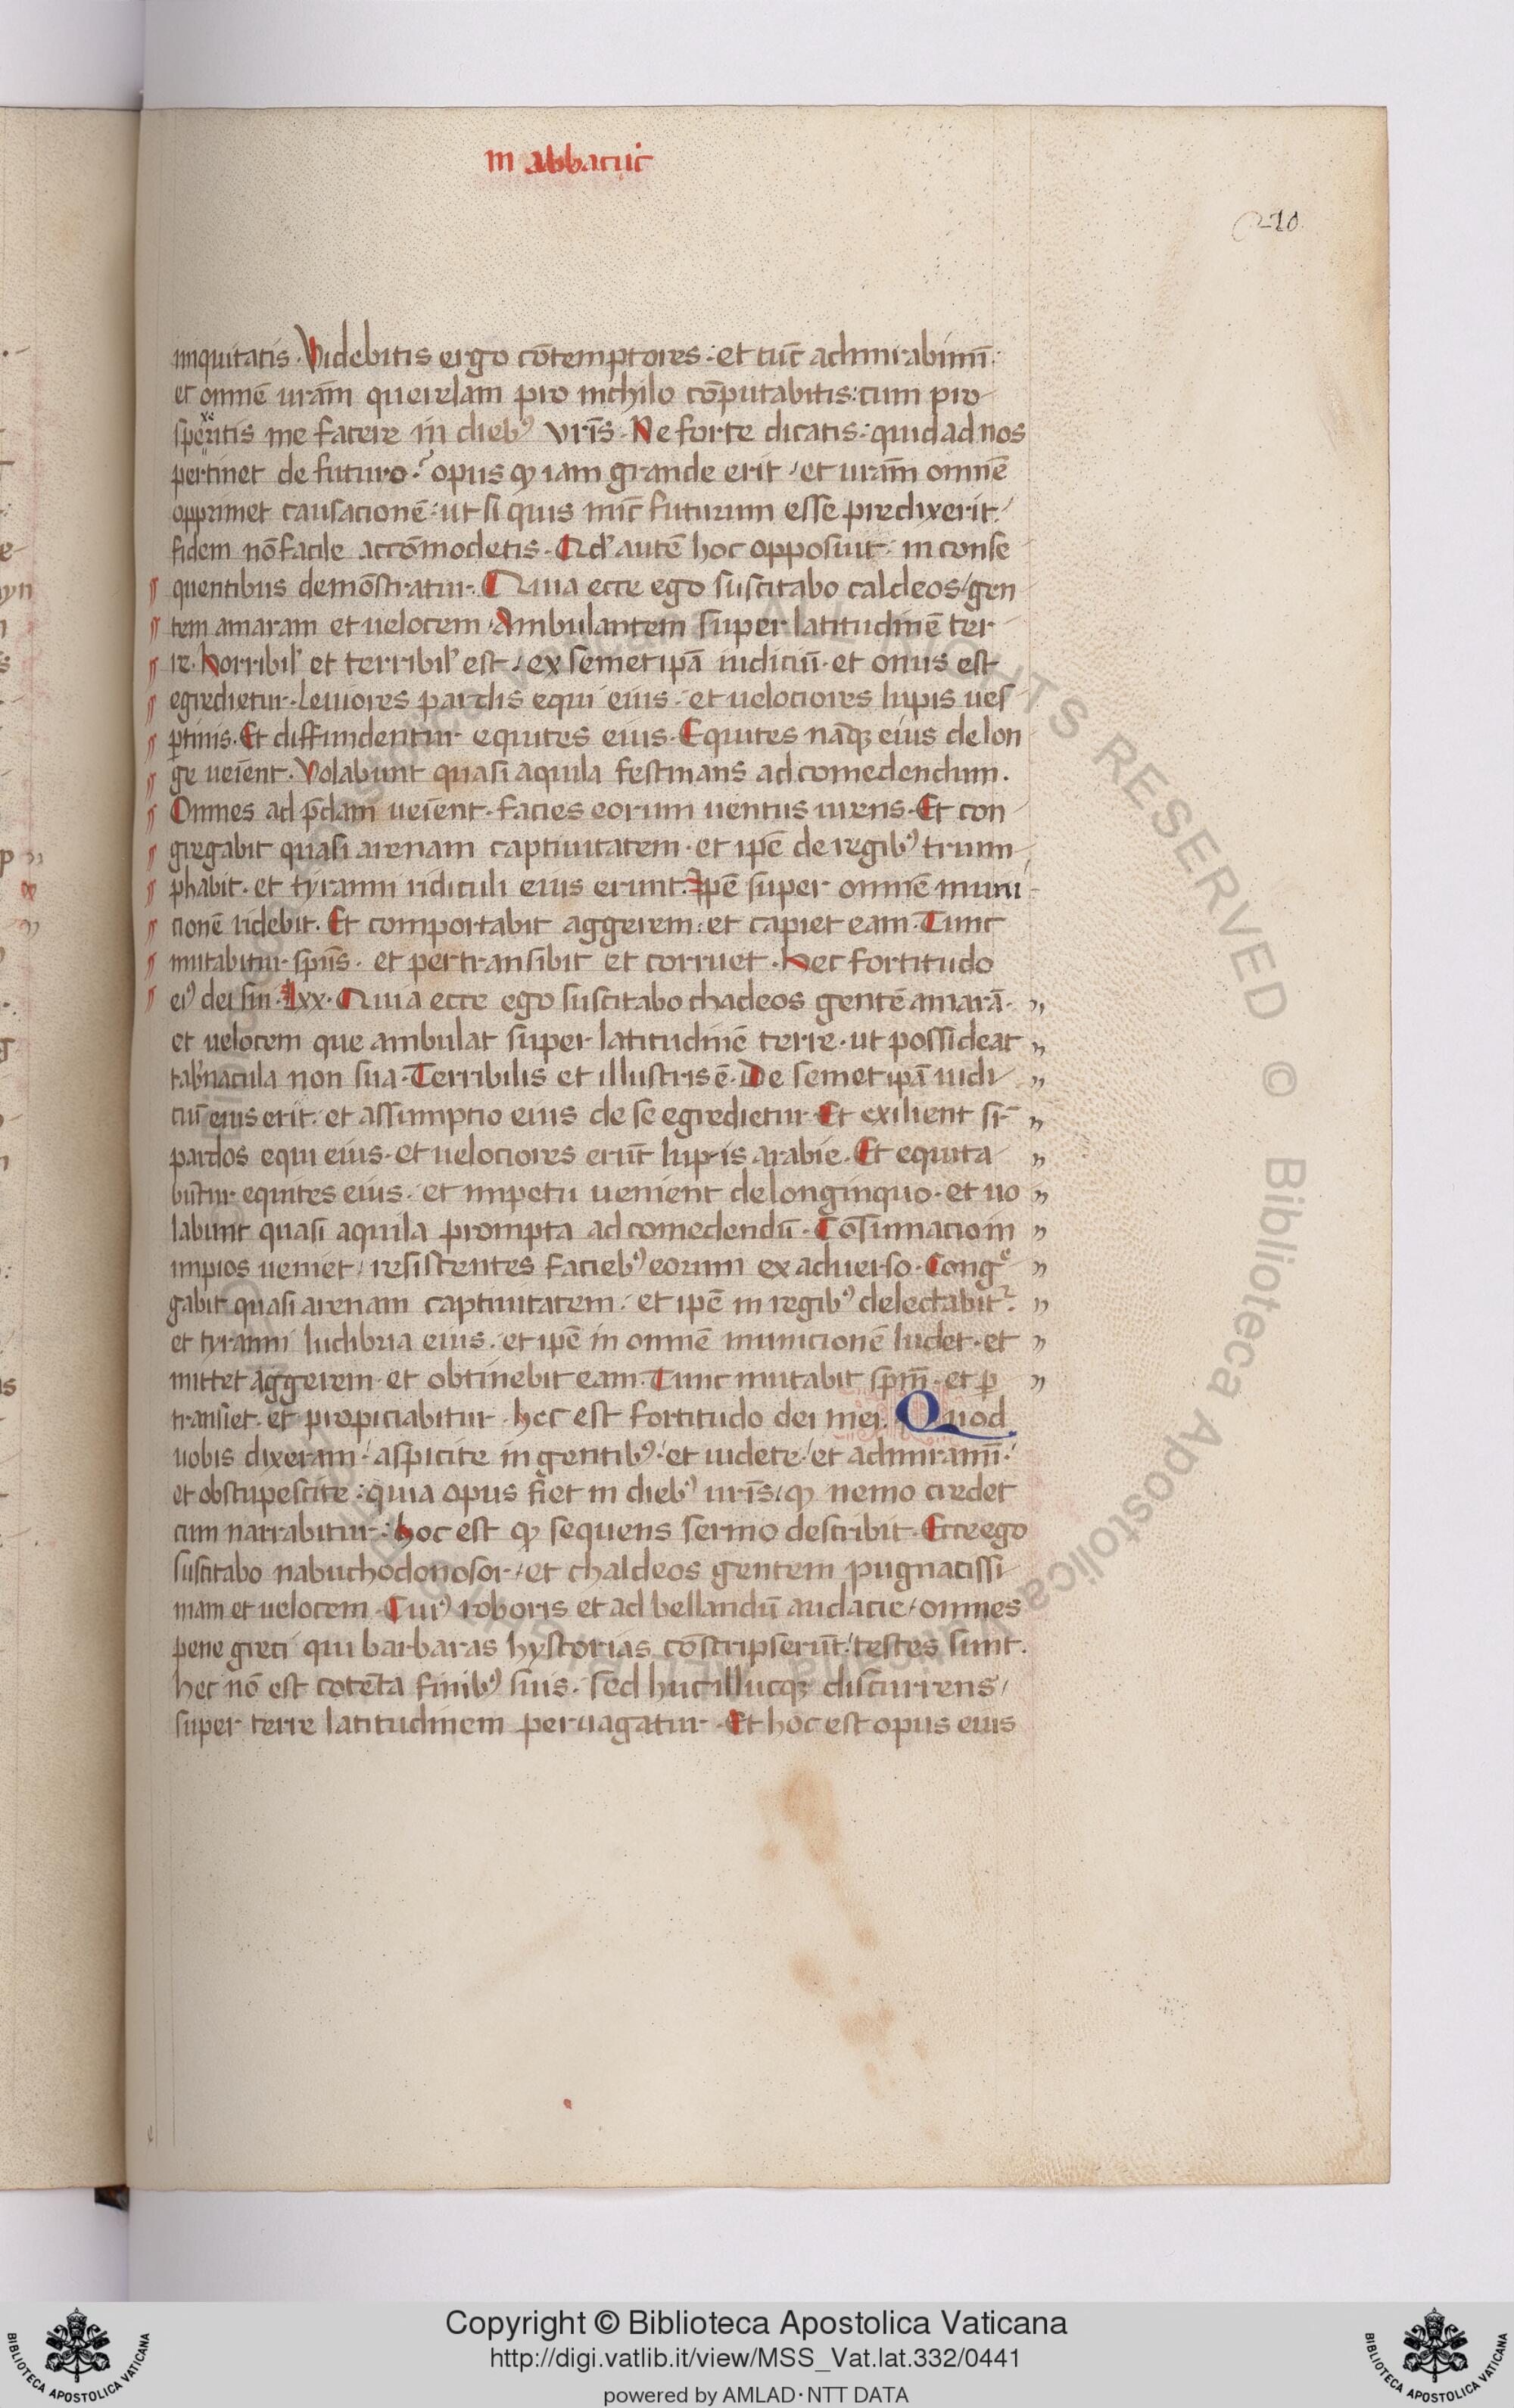 in abbacuc
210
iniquitatis. Videbitis ergo cōtemptores: et tūc admirabimī:
et omnē urām querelam pro nichilo cōputabitis: cum pro
sperxeritis me facere in dieb⁹ vrīs. Ne forte dicatis: quid ad nos
pertinet de futuro? opus qꝫ iam grande erit / et urām omnē
opprimet causacionē: ut si quis nūc futurum esse predixerit:
fidem nō facile accōmodetis. Qd' autē hoc opposuit: in conse
quentibus demōstratur. Quia ecce ego suscitabo caldeos / gen
tem amaram et uelocem. Ambulantem super latitudinē ter
re. horribil' et terribil' est / ex semet ipā iudiciū. et onus est
egredietur. leuiores pardis equi eius. et uelociores lupis ues
ꝑtinis. Et diffundentur equites eius. Equites nāqꝫ eius de lon
ge ueīent. Volabunt quasi aquila festinans ad comedendum.
Omnes ad p̄dam ueīent. facies eorum uentus urens. Et con
gregabit quasi arenam captiuitatem. et ipē de regib⁹ trium
phabit. et tyranni ridiculi eius erunt. Ipē super omnē muni
cionē ridebit. Et comportabit aggerem: et capiet eam. Tunc
mutabitur spūs. et pertransibit et corruet. hec fortitudo
ei⁹ dei sui. lxx. Quia ecce ego suscitabo chadeos gentē amarā.
et uelocem que ambulat super latitudinē terre. ut possideat
tab'nacula non sua. Terribilis et illustris ē. De semet ipā iudi
ciū eius erit. et assumptio eius de se egredietur. Et exilient si
pardos equi eius. et uelociores erūt lupis arabie. Et equita
būtur equites eius. et impetu uenient de longinquo. et uo
labunt quasi aquila prompta ad comedendū. Cōsumacio in
impios ueniet / resistentes facieb⁹ eorum ex aduerso. Congͤ
gabit quasi arenam captiuitatem. et ipē in regib⁹ delectabit².
et tyranni ludibria eius. et ipē in omnē municionē ludet. et
mittet aggerem. et obtinebit eam. Tunc mutabit spm̄. et ꝑ
transiet. et propiciabitur. hec est fortitudo dei mei. Quod
uobis dixeram / aspicite in gentib⁹. et uidete / et admiramī:
et obstupescite: quia opus fiet in dieb⁹ urīs / qꝫ nemo credet
cum narrabitur: hoc est qꝫ sequens sermo describit. Ecce ego
suscitabo nabuchodonosor / et chaldeos gentem pugnacissi
mam et uelocem. Cui⁹ roboris et ad bellandū audacie / omnes
pene greci qui barbaras hystorias cōscripserūt / testes sunt.
hec nō est cotēta finib⁹ suis. sed huc illucqꝫ discurrens /
super terre latitudinem peruagatur. Et hoc est opus eius
Copyright © Biblioteca Apostolica Vaticana
http://digi.vatlib.it/view/MSS_Vat.lat.332/0441
powered by AMLAD·NTT DATA